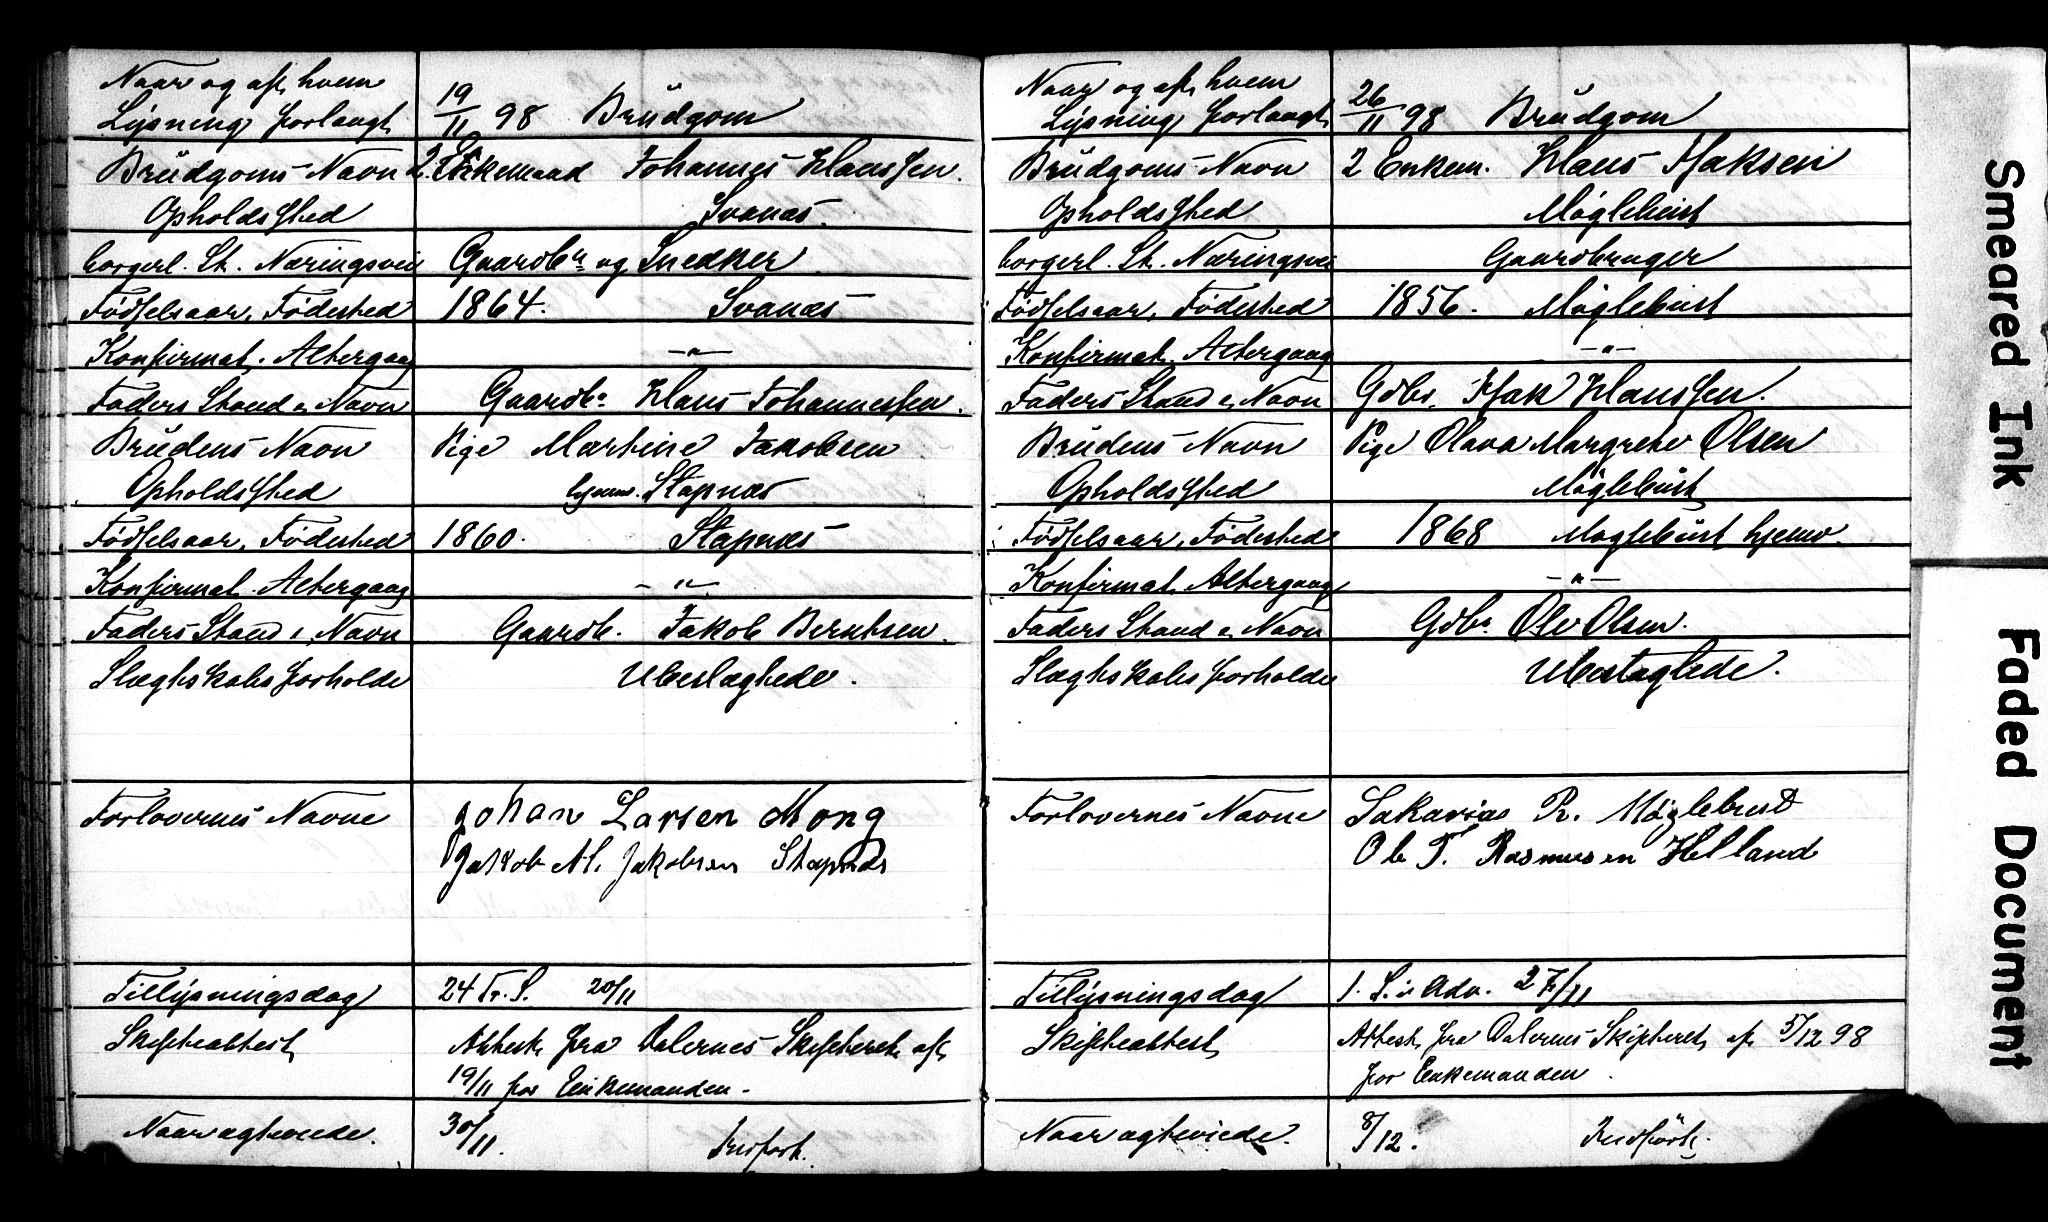 Naar og af hvem
Lysning forlangt 19/11 98 Brudgom
Brudgoms Navn 2. Enkemand Johannes Klaussen.
Opholdssted Svanæs.
borgerl. St. Næringsvei Gaardbr og Snedker
Fødselsaar, Fødested 1864. Svanæs
Konfirmat. Altergang -"-
Faders Stand & Navn Gaardbr Klaus Johannessen.
Brudens Navn Pige Martine Jakobsen
Opholdssted hjemv. Stapnæs
Fødselsaar, Fødested 1860. Stapnæs
Konfirmat. Altergang -"-
Faders Stand & Navn Gaardb. Jakob Berntsen.
Slægtskabsforholde Ubeslægtede.
Forlovernes Navne Johan Larsen Mong
Jakob M. Jakobsen Stapnæs
Tillysningsdag 24 Tr. S. 20/11
Skifteattest Attest fra Dalernes Skifteret af
19/11 for Enkemanden.
Naar agteviede. 30/11. Indført.
Naar og af hvem
Lysning forlangt 26/11 98 Brudgom
Brudgoms Navn 2 Enkem. Klaus Isaksen
Opholdssted Møglebust
borgerl. St. Næringsvei Gaardbruger
Fødselsaar, Fødested 1856. Møglebust
Konfirmat. Altergang -"-
Faders Stand & Navn Gdbr. Isak Klaussen.
Brudens Navn Pige Olava Margrete Olsen
Opholdssted Møglebust
Fødselsaar, Fødested 1868 Møglebust hjemv.
Konfirmat. Altergang -"-
Faders Stand & Navn Gdbr Ole Olsen.
Slægtskabsforholde Ubeslægtede.
Forlovernes Navne Sakarias R. Møglebust
Ole T. Rasmusen Helland
Tillysningsdag 1. S. i Adv. 27/11
Skifteattest Attest fra Dalernes Skifteret af 5/12 98
for Enkemanden.
Naar agteviede. 8/12. Indført.
Smeared Ink
Faded Document